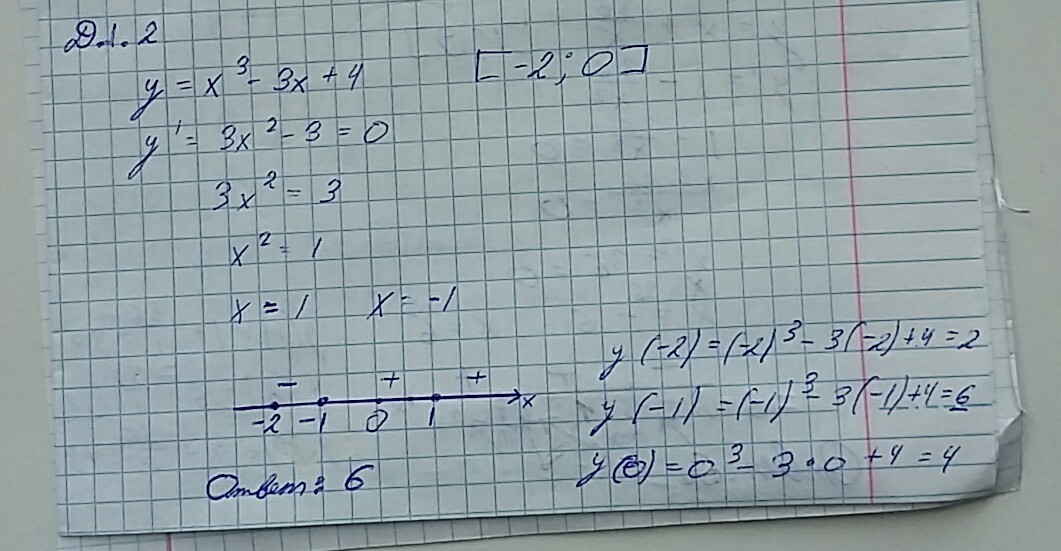 Д.1.2
y = x³ - 3x + 4 [-2; 0]
y' = 3x² - 3 = 0
3x² = 3
x² = 1
x = 1 x = -1
- + +
-2 -1 0 1 x
y(-2) = (-2)³ - 3(-2) + 4 = 2
y(-1) = (-1)³ - 3(-1) + 4 = 6
y(0) = 0³ - 3·0 + 4 = 4
Ответ: 6